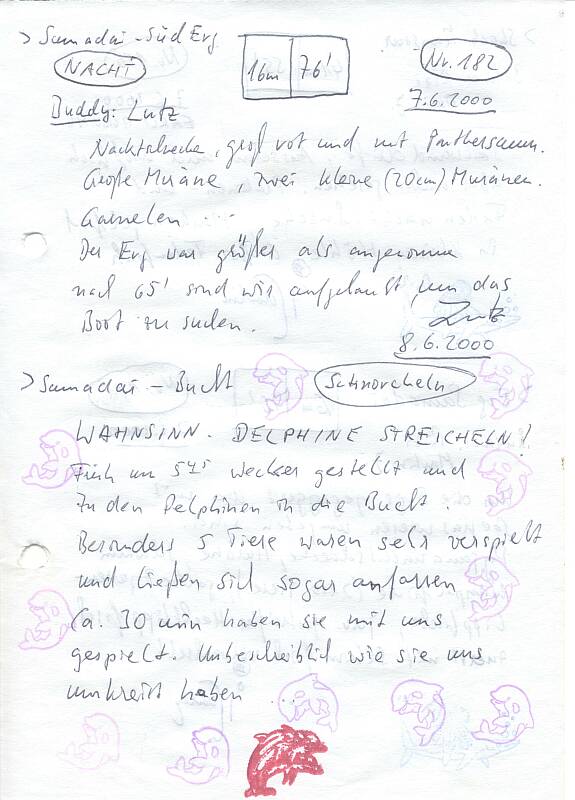 > Samadai - Süd Erg
NACHT
16m 76'
Nr. 182
7.6.2000
Buddy: Lutz
Nacktschnecke, groß rot und mit Panthersaum.
Große Muräne, zwei kleine (20cm) Muränen.
Garnelen ...
Der Erg war größer als angenommen
nach 65' sind wir aufgetaucht, um das
Boot zu suchen.
Lutz
8.6.2000
> Samadai - Bucht
Schnorcheln
WAHNSINN. DELPHINE STREICHELN!
Früh um 5 45 wecker gestellt und
zu den Delphinen in die Bucht.
Besonders 5 Tiere waren sehr verspielt
und ließen sich sogar anfassen
Ca. 30 min haben sie mit uns
gespielt. Unbeschreiblich wie sie uns
umkreist haben ...